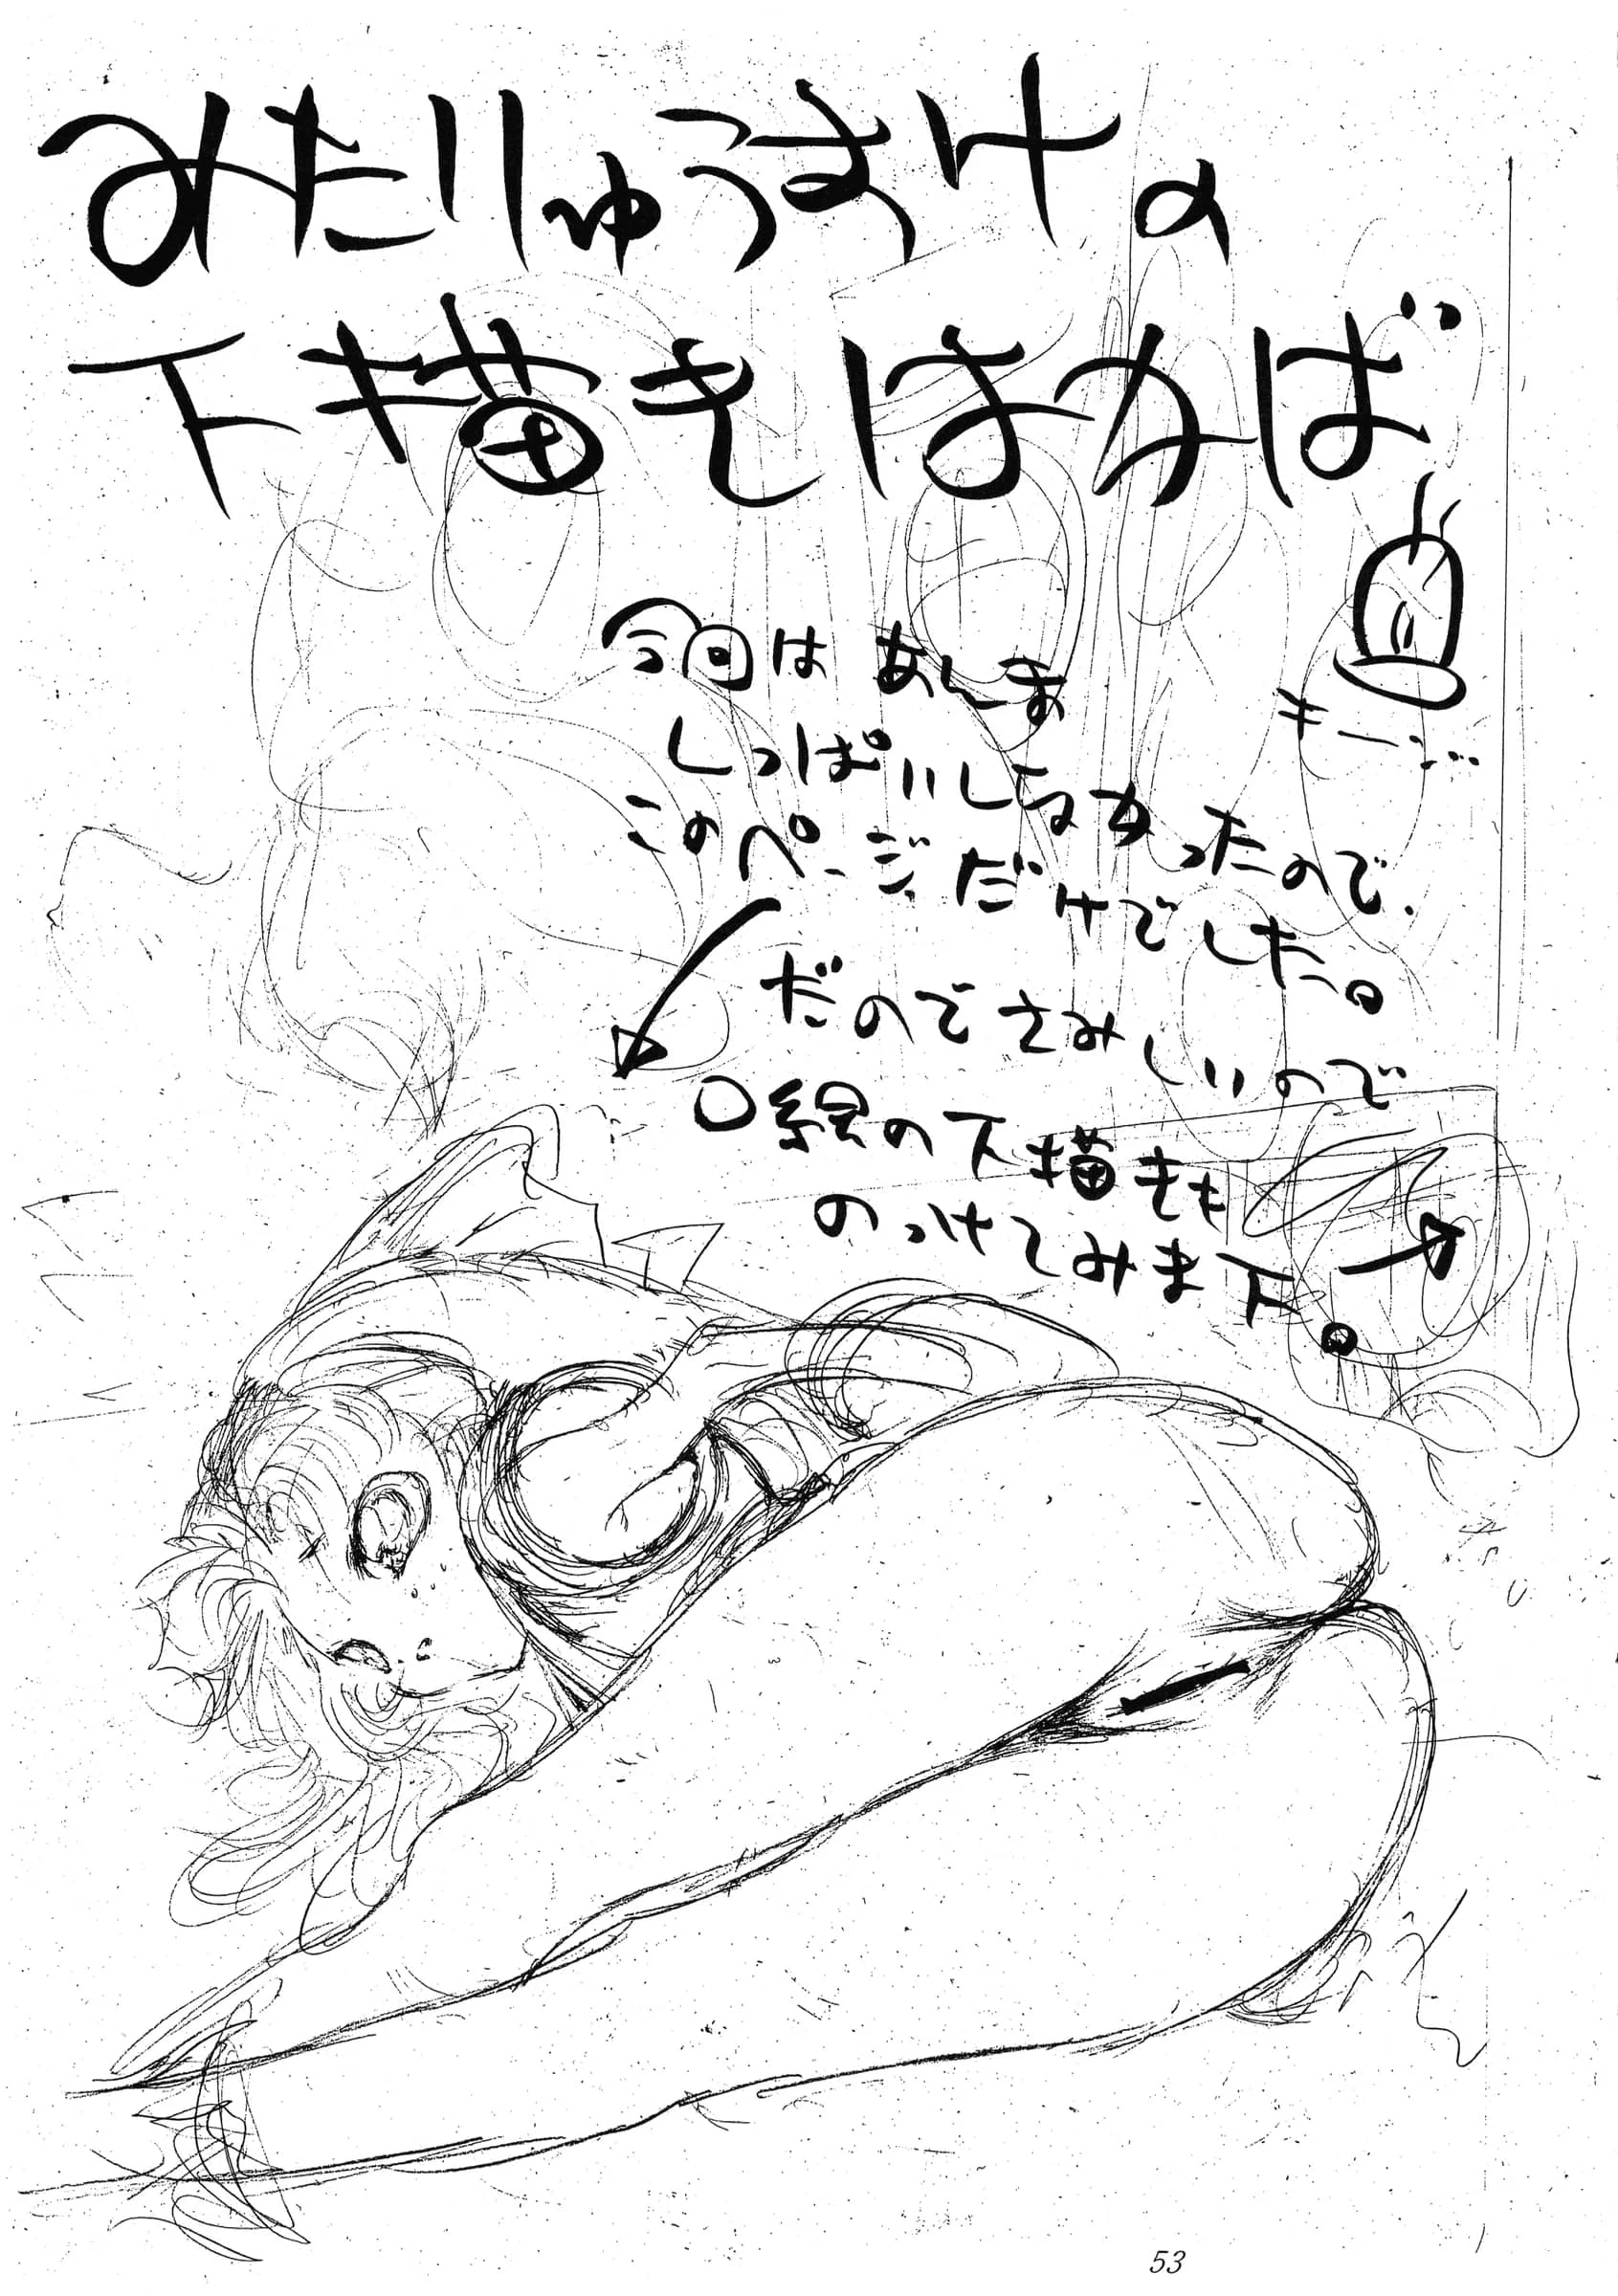 みたりゅうすけの
下描きはかば
キーン…
今回はあんま
しっぱいしなかったので、
このページだけでした。
だのでさみしいので
口絵の下描きも
のっけてみま下。
53